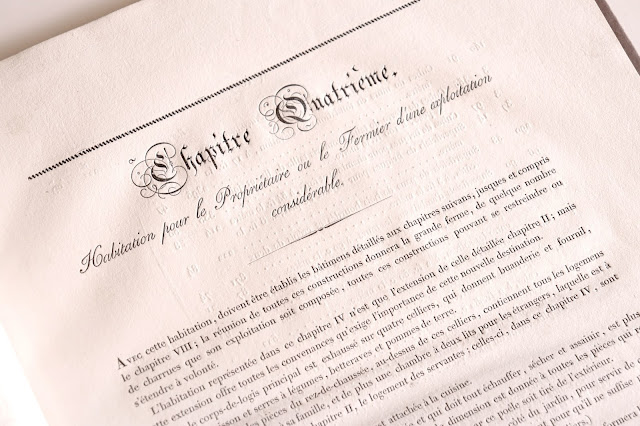 Chapitre Quatrième.
Habitation pour le Propriétaire ou le Fermier d'une exploitation
considérable.
Avec cette habitation, doivent être établis les bâtimens détaillés aux chapitres suivans, jusques et compris
le chapitre VIII; la réunion de toutes ces constructions donnera la grande ferme, de quelque nombre
de charrues que son exploitation soit composée, toutes ces constructions pouvant se restreindre ou
s'étendre à volonté.
L'habitation représentée dans ce chapitre IV n'est que l'extension de celle détaillée chapitre II; mais
cette extension offre toutes les convenances qu'exige l'importance de cette nouvelle destination.
le corps-de-logis principal est exhaussé sur quatre celliers, qui donnent buanderie et fournil,
ison et serres à légumes, betteraves et pommes de terre.
pièces du rez-de-chaussée, au-dessus de ces celliers, contiennent tous les logemens
à sa famille, et de plus une chambre à deux lits pour les étrangers, laquelle est à
chapitre II, le logement des servantes; celles-ci, dans ce chapitre IV, sont
attachée à la cuisine.
et qui doit tout échauffer, sécher et assainir, est plus
dimension est donnée à toutes les pièces qui
ce poêle soit tiré de l'extérieur.
côté du jardin, pour servir de
pour qu'il ne suffise
celliers.)